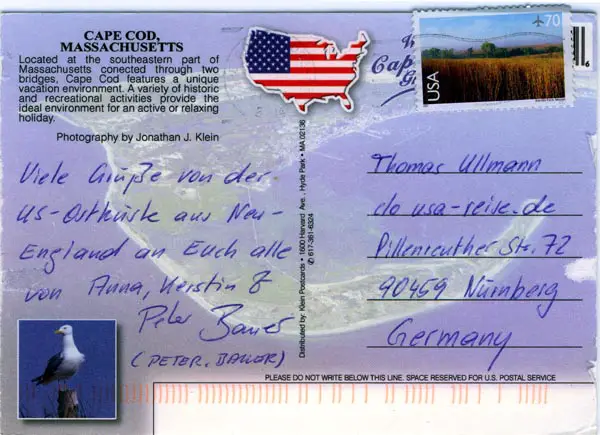 CAPE COD,
MASSACHUSETTS
Located at the southeastern part of
Massachusetts conected through two
bridges, Cape Cod features a unique
vacation environment. A variety of historic
and recreational activities provide the
ideal environment for an active or relaxing
holiday.
Photography by Jonathan J. Klein
Viele Grüße von der
US-Ostküste aus Neu-
England an Euch alle
von Anna, Kerstin &
Peter Bauer
(PETER, BAUER)
Distributed by: Klein Postcards • 1600 Harvard Ave., Hyde Park • MA 02136
✆ 617-361-6324
USA
70
6
Thomas Ullmann
c/o usa-reise.de
Pillenreuther Str. 72
90459 Nürnberg
Germany
PLEASE DO NOT WRITE BELOW THIS LINE. SPACE RESERVED FOR U.S. POSTAL SERVICE